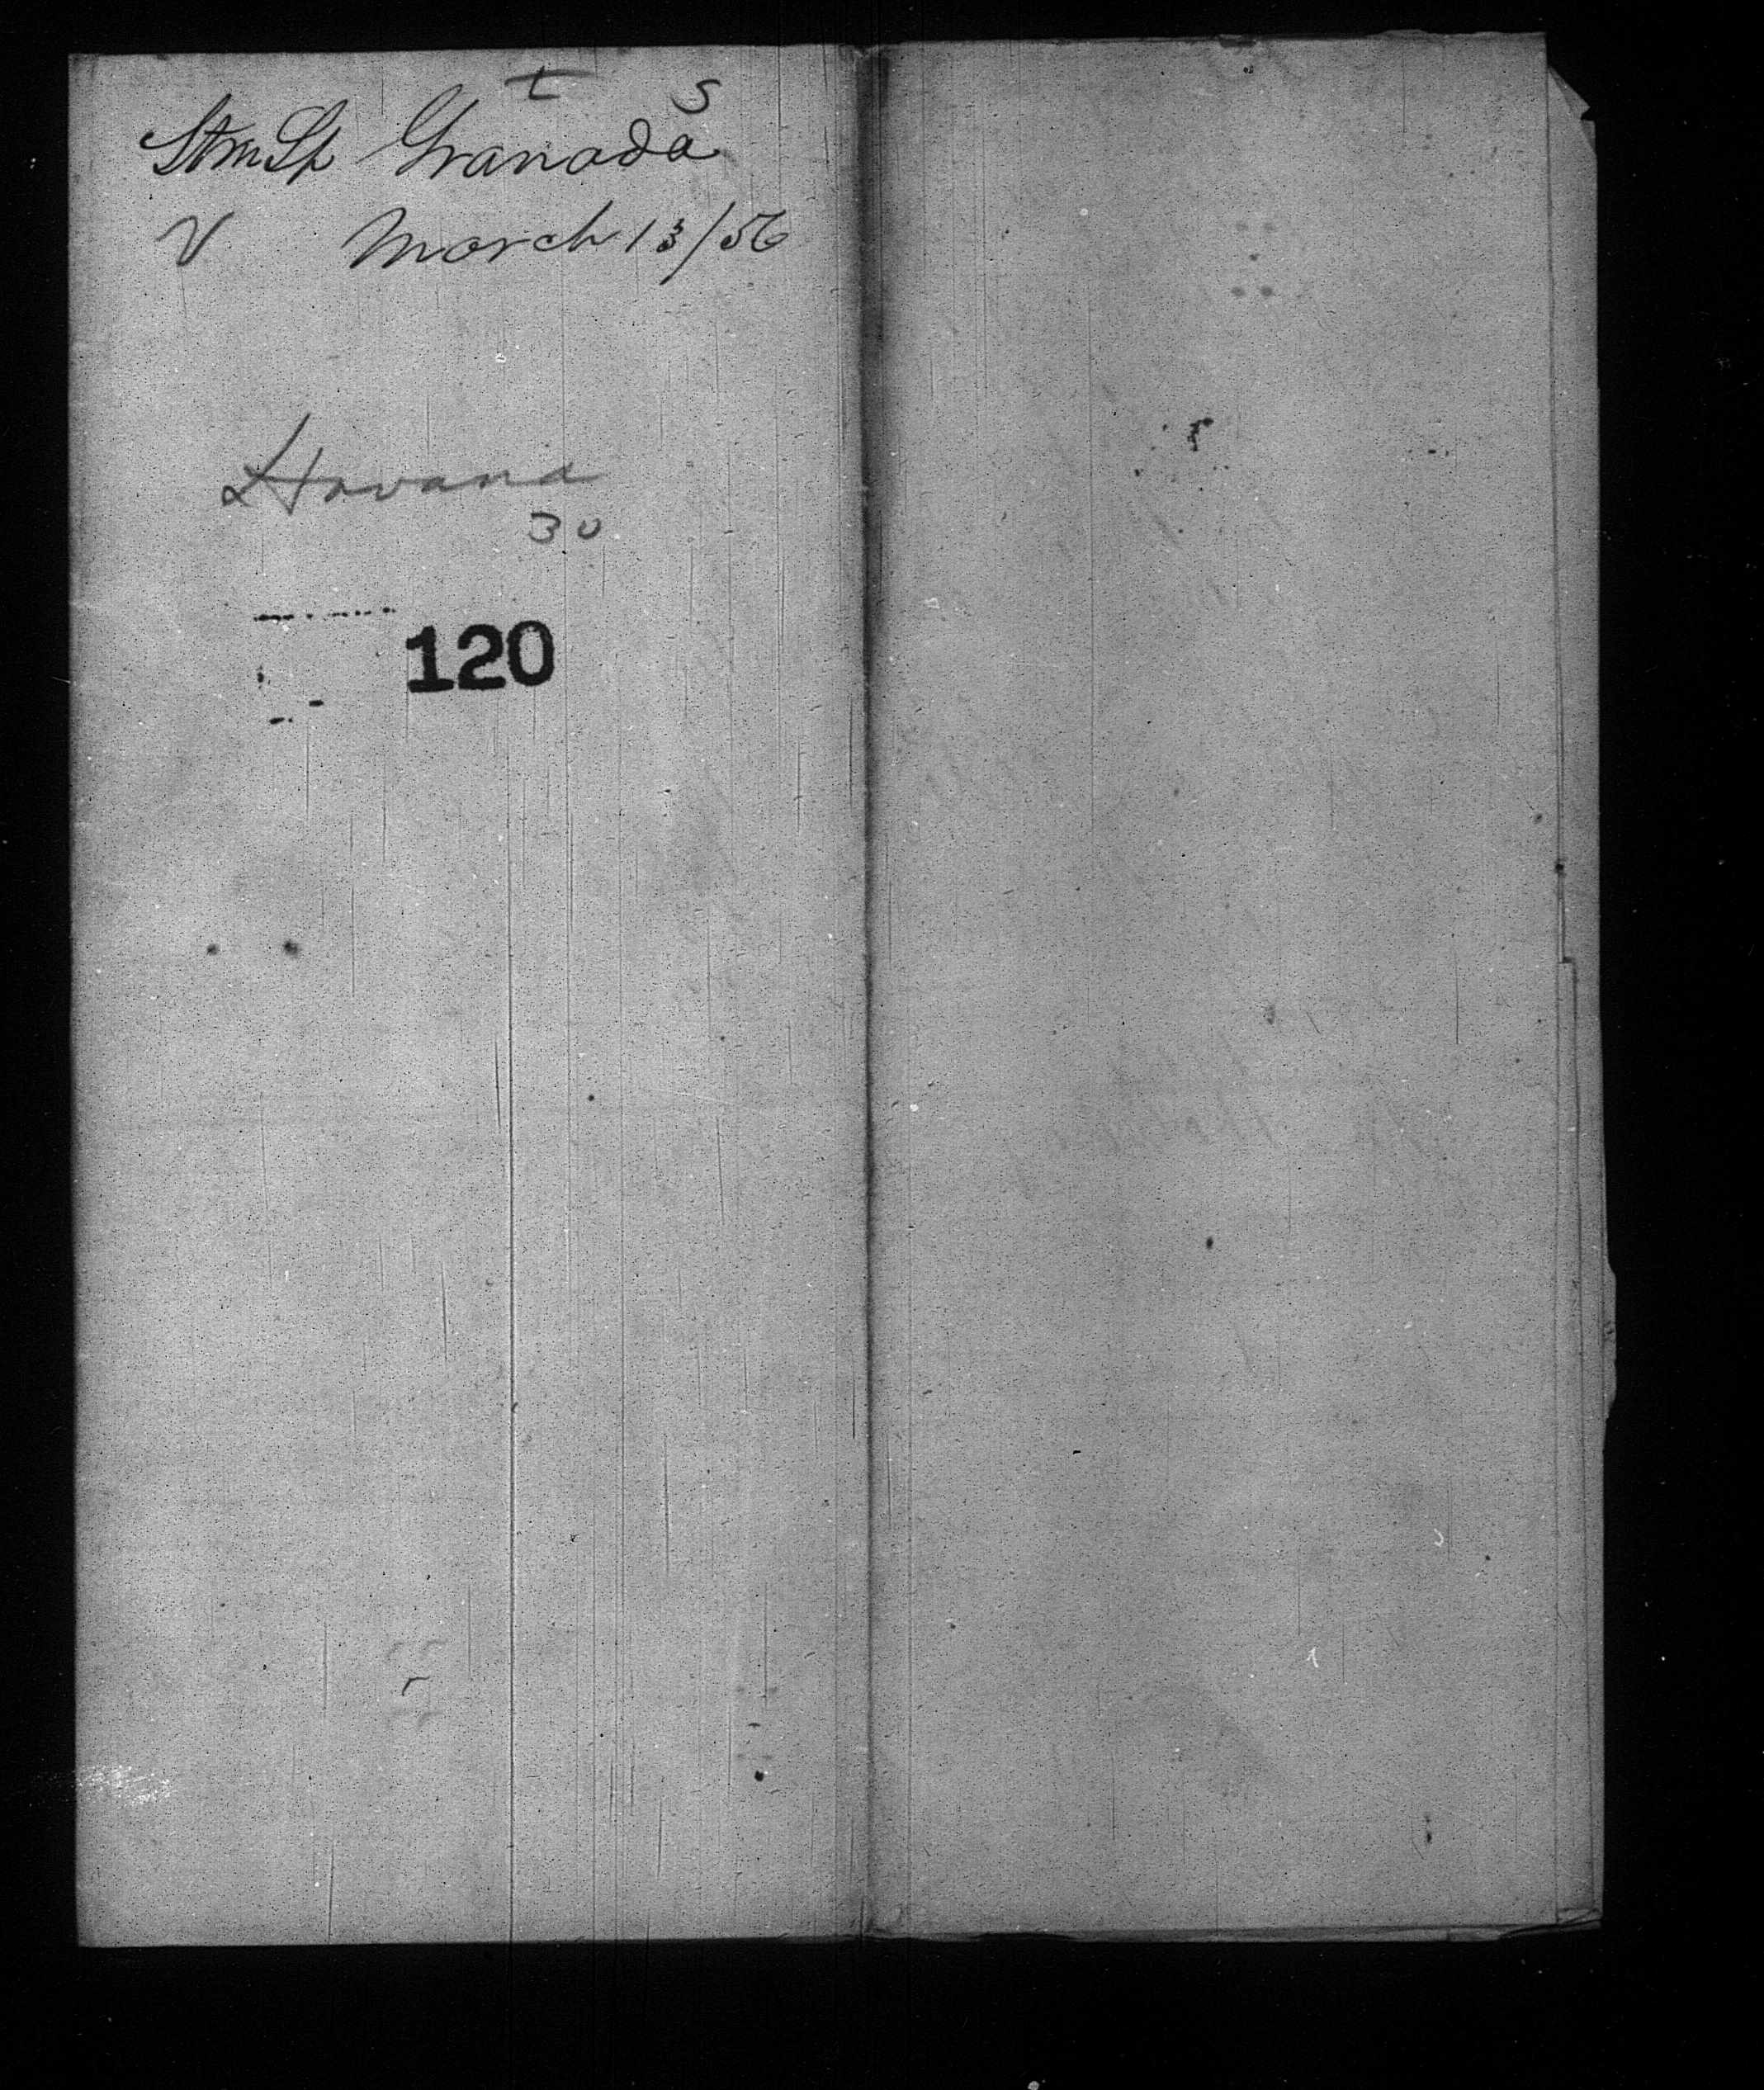 t S
StmSp Granada
V March 13/56
Havana
30
120